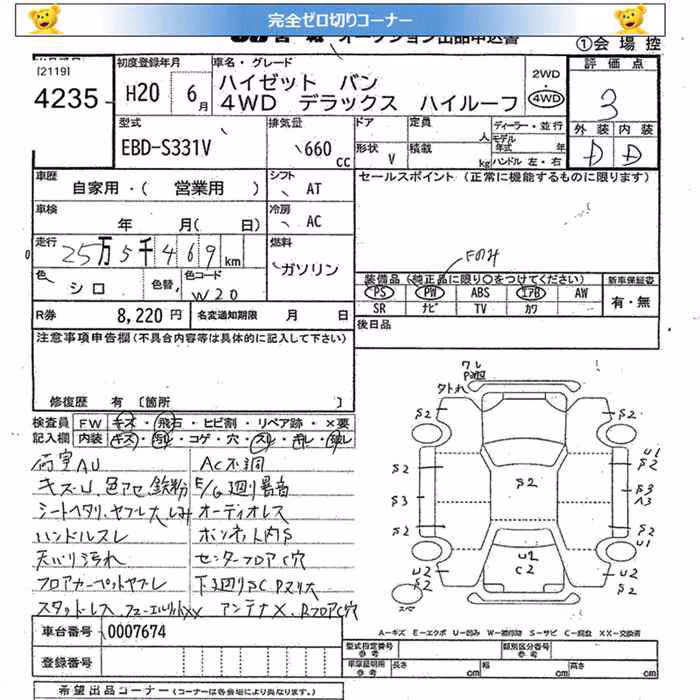 完全ゼロ切りコーナー
オークション出品申込書
①会場控
[2119]
4235
初度登録年月
H20 6月
車名・グレード
ハイゼット バン
4WD デラックス ハイルーフ
2WD
・
4WD
評価点
3
外装 内装
D D
型式
EBD-S331V
排気量
660 cc
ドア
形状 V
定員 人
積載 kg
ディーラー・並行
モデル年式 年
ハンドル 左・右
車歴
自家用・( 営業用 )
シフト
AT
セールスポイント (正常に機能するものに限ります)
車検
年 月( 日)
冷房
AC
走行
25万5千469km
燃料
ガソリン
Fのみ
色
シロ
色替
色コード
W20
装備品(純正品に限り〇をつけてください)
新車保証書
PS PW ABS エアB AW
SR ナビ TV カワ
有・無
R券 8,220円
名変通知期限 月 日
後日品
注意事項申告欄(不具合内容等は具体的に記入して下さい)
修復歴 有 〔箇所 〕
検査員記入欄
FW キズ・飛石・ヒビ割・リペア跡・×要
内装 キズ・汚れ・コゲ・穴・スレ・キレ・破レ
荷室AU AC不調
キズU、色アセ、鉄粉 E/G廻り異音
シートヘタリ・ヤブレ大、しみ オーディオレス
ハンドルスレ ボンネット内S
天バリ汚れ センターフロアC穴
フロアカーペットヤブレ 下廻りSC
アンテナX、RフロアC穴
ワレ
外れ
S2 S2
S2 U1
S2
S2
S3 S3
S2 S2
U1
U2
C2
U2 U2
S2 S2
スペ
車台番号 0007674
登録番号
A－キズ E－エクボ U－凹み W－補修跡 S－サビ C－腐食 XX－交換済
型式指定番号 参考
類別区分番号 参考
車庫証明用 参考
長さ cm 幅 cm 高さ cm
希望出品コーナー(コーナーは各会場により異なります。)